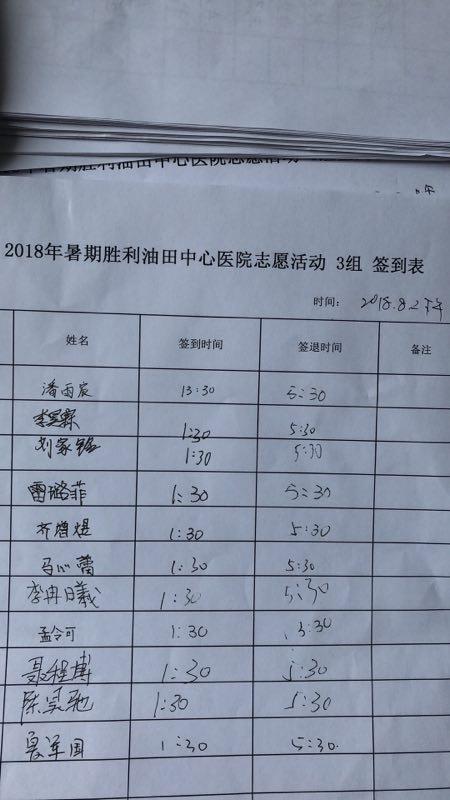 2018年暑期胜利油田中心医院志愿活动 3组 签到表
时间： 2018.8.2下午
姓名 签到时间 签退时间 备注
潘雨宸 13:30 5:30
1:30 5:30
刘家铭 1:30 5:30
雷璐菲 1:30 5:30
齐增煜 1:30 5:30
马心蕾 1:30 5:30
李冉曦 1:30 5:30
孟令可 1:30 5:30
聂程博 1:30 5:30
陈昊驰 1:30 5:30
夏军国 1:30 5:30